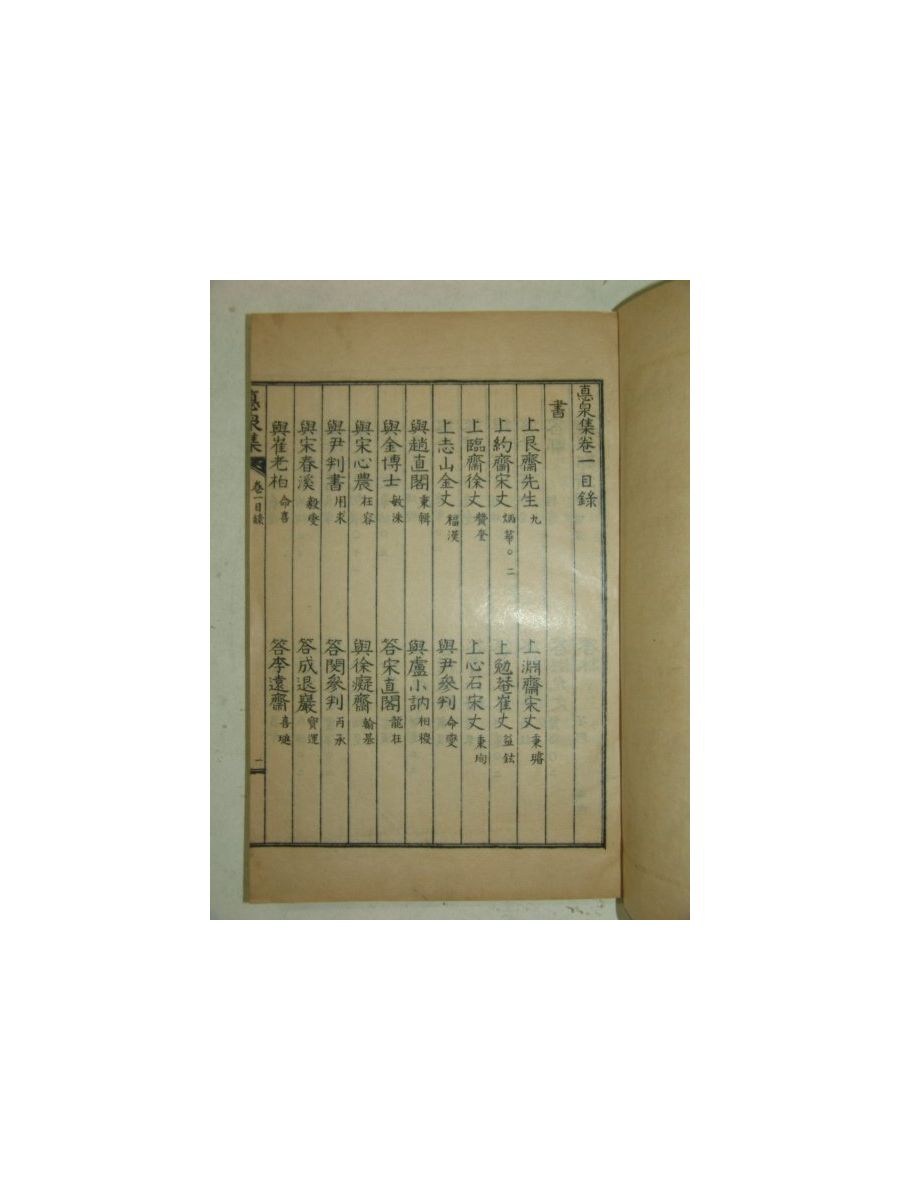 悳泉集卷一目錄
書
上艮齋先生 九 上淵齋宋丈 秉璿
上約齋宋丈 炳華○二 上勉菴崔丈 益鉉
上臨齋徐丈 贊奎 上心石宋丈 秉珣
上志山金丈 福漢 與尹參判 命燮
與趙直閣 秉輯 與盧小訥 相稷
與金博士 敏洙 答宋直閣 龍在
與宋心農 在容 與徐癡齋 翰基
與尹判書 用求 答閔參判 丙承
與宋春溪 毅燮 答成退巖 寶運
與崔老柏 命喜 答李遠齋 喜璡
悳泉集 卷一目錄 一